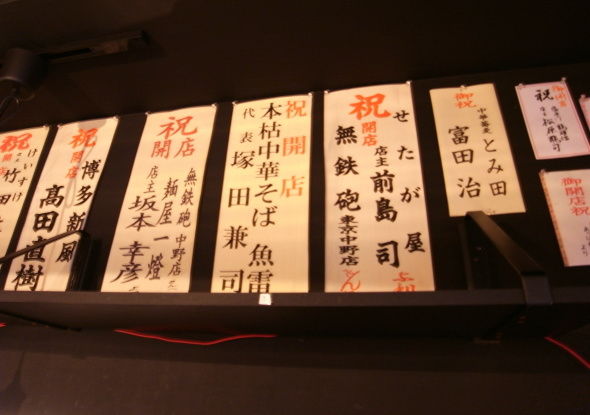 祝
御開店祝
御祝
中華蕎麦 とみ田
富田治
祝
開店
せたが屋
店主 前島司
無鉄砲 東京中野店
祝開店
本枯中華そば 魚雷
代表 塚田兼司
祝
開店
無鉄砲 中野店
麺屋一燈
店主 坂本幸彦
祝
開店
博多新風
髙田直樹
祝
開店
けいすけ
竹田